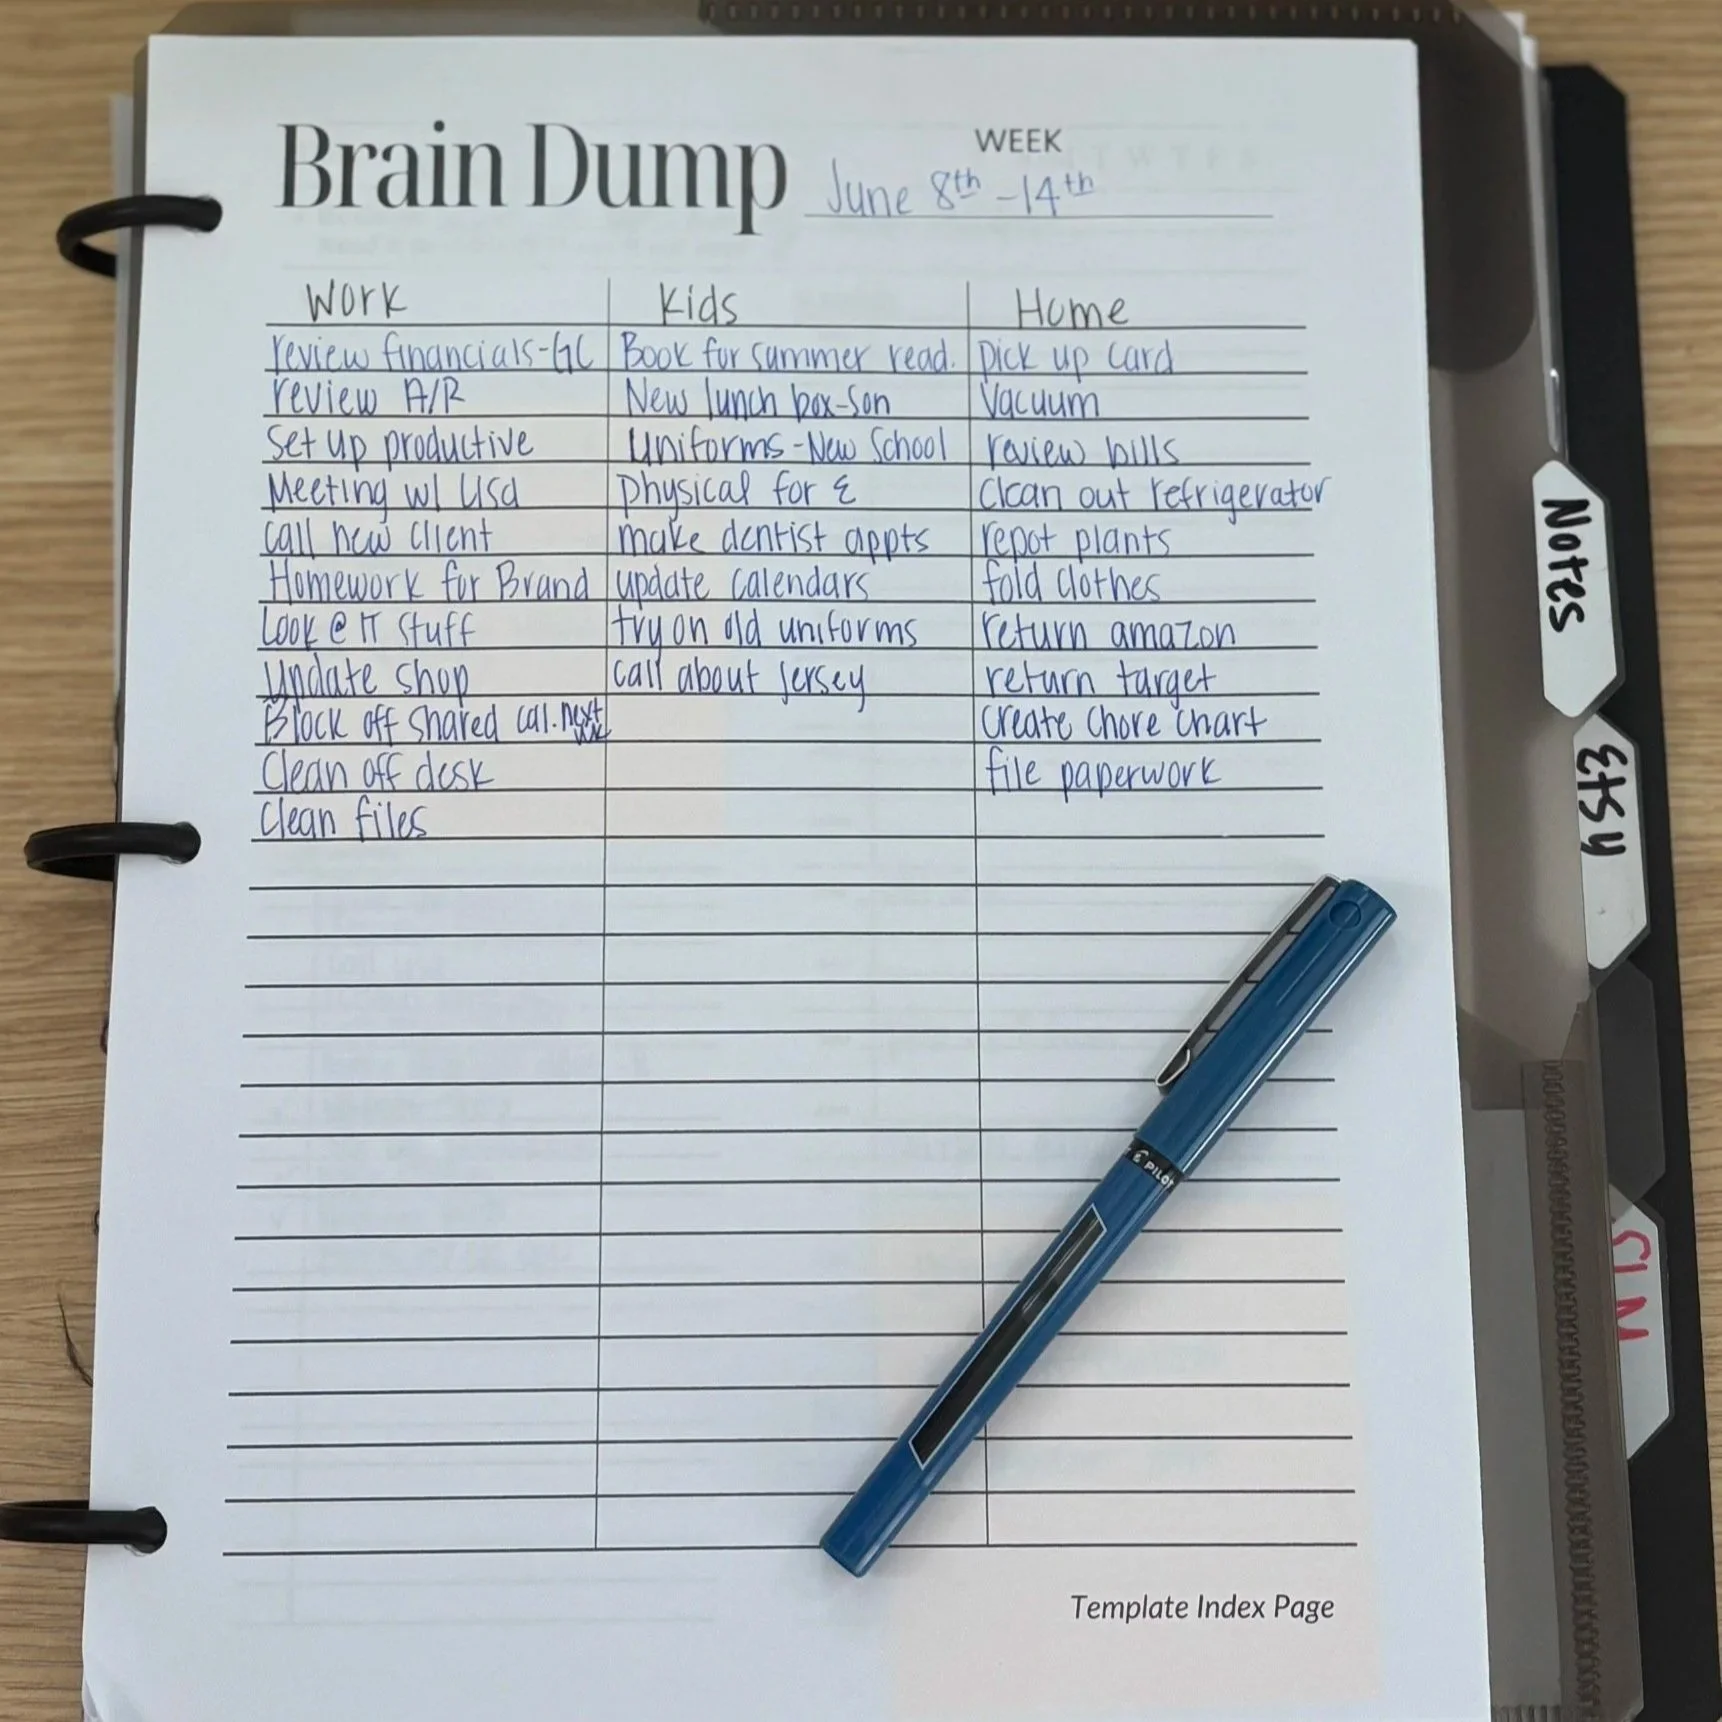 Brain Dump
WEEK
June 8th - 14th
Work Kids Home
review financials-GC Book for summer read. pick up card
review A/R New lunch box-son Vacuum
Set up productive Uniforms-New School review bills
Meeting w/ Lisa physical for E clean out refrigerator
call new client make dentist appts repot plants
Homework for Brand update calendars fold clothes
Look @ IT stuff try on old uniforms return amazon
Update shop call about jersey return target
Block off shared cal. next wk create chore chart
Clean off desk file paperwork
Clean files
PILOT
Template Index Page
Notes
Etsy